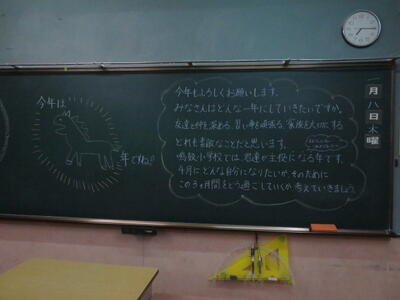 今年は
年ですね。
今年もよろしくお願いします。
みなさんはどんな一年にしていきたいですか。
友達と絆を深める、習い事を頑張る、家族を大切にする
どれも素敵なことだと思います。
鳴鼓小学校では、君達が主役になる年です。
4月にどんな自分になりたいか、そのために
この3ヶ月間をどう過ごしていくか考えていきましょう。
一月八日木曜